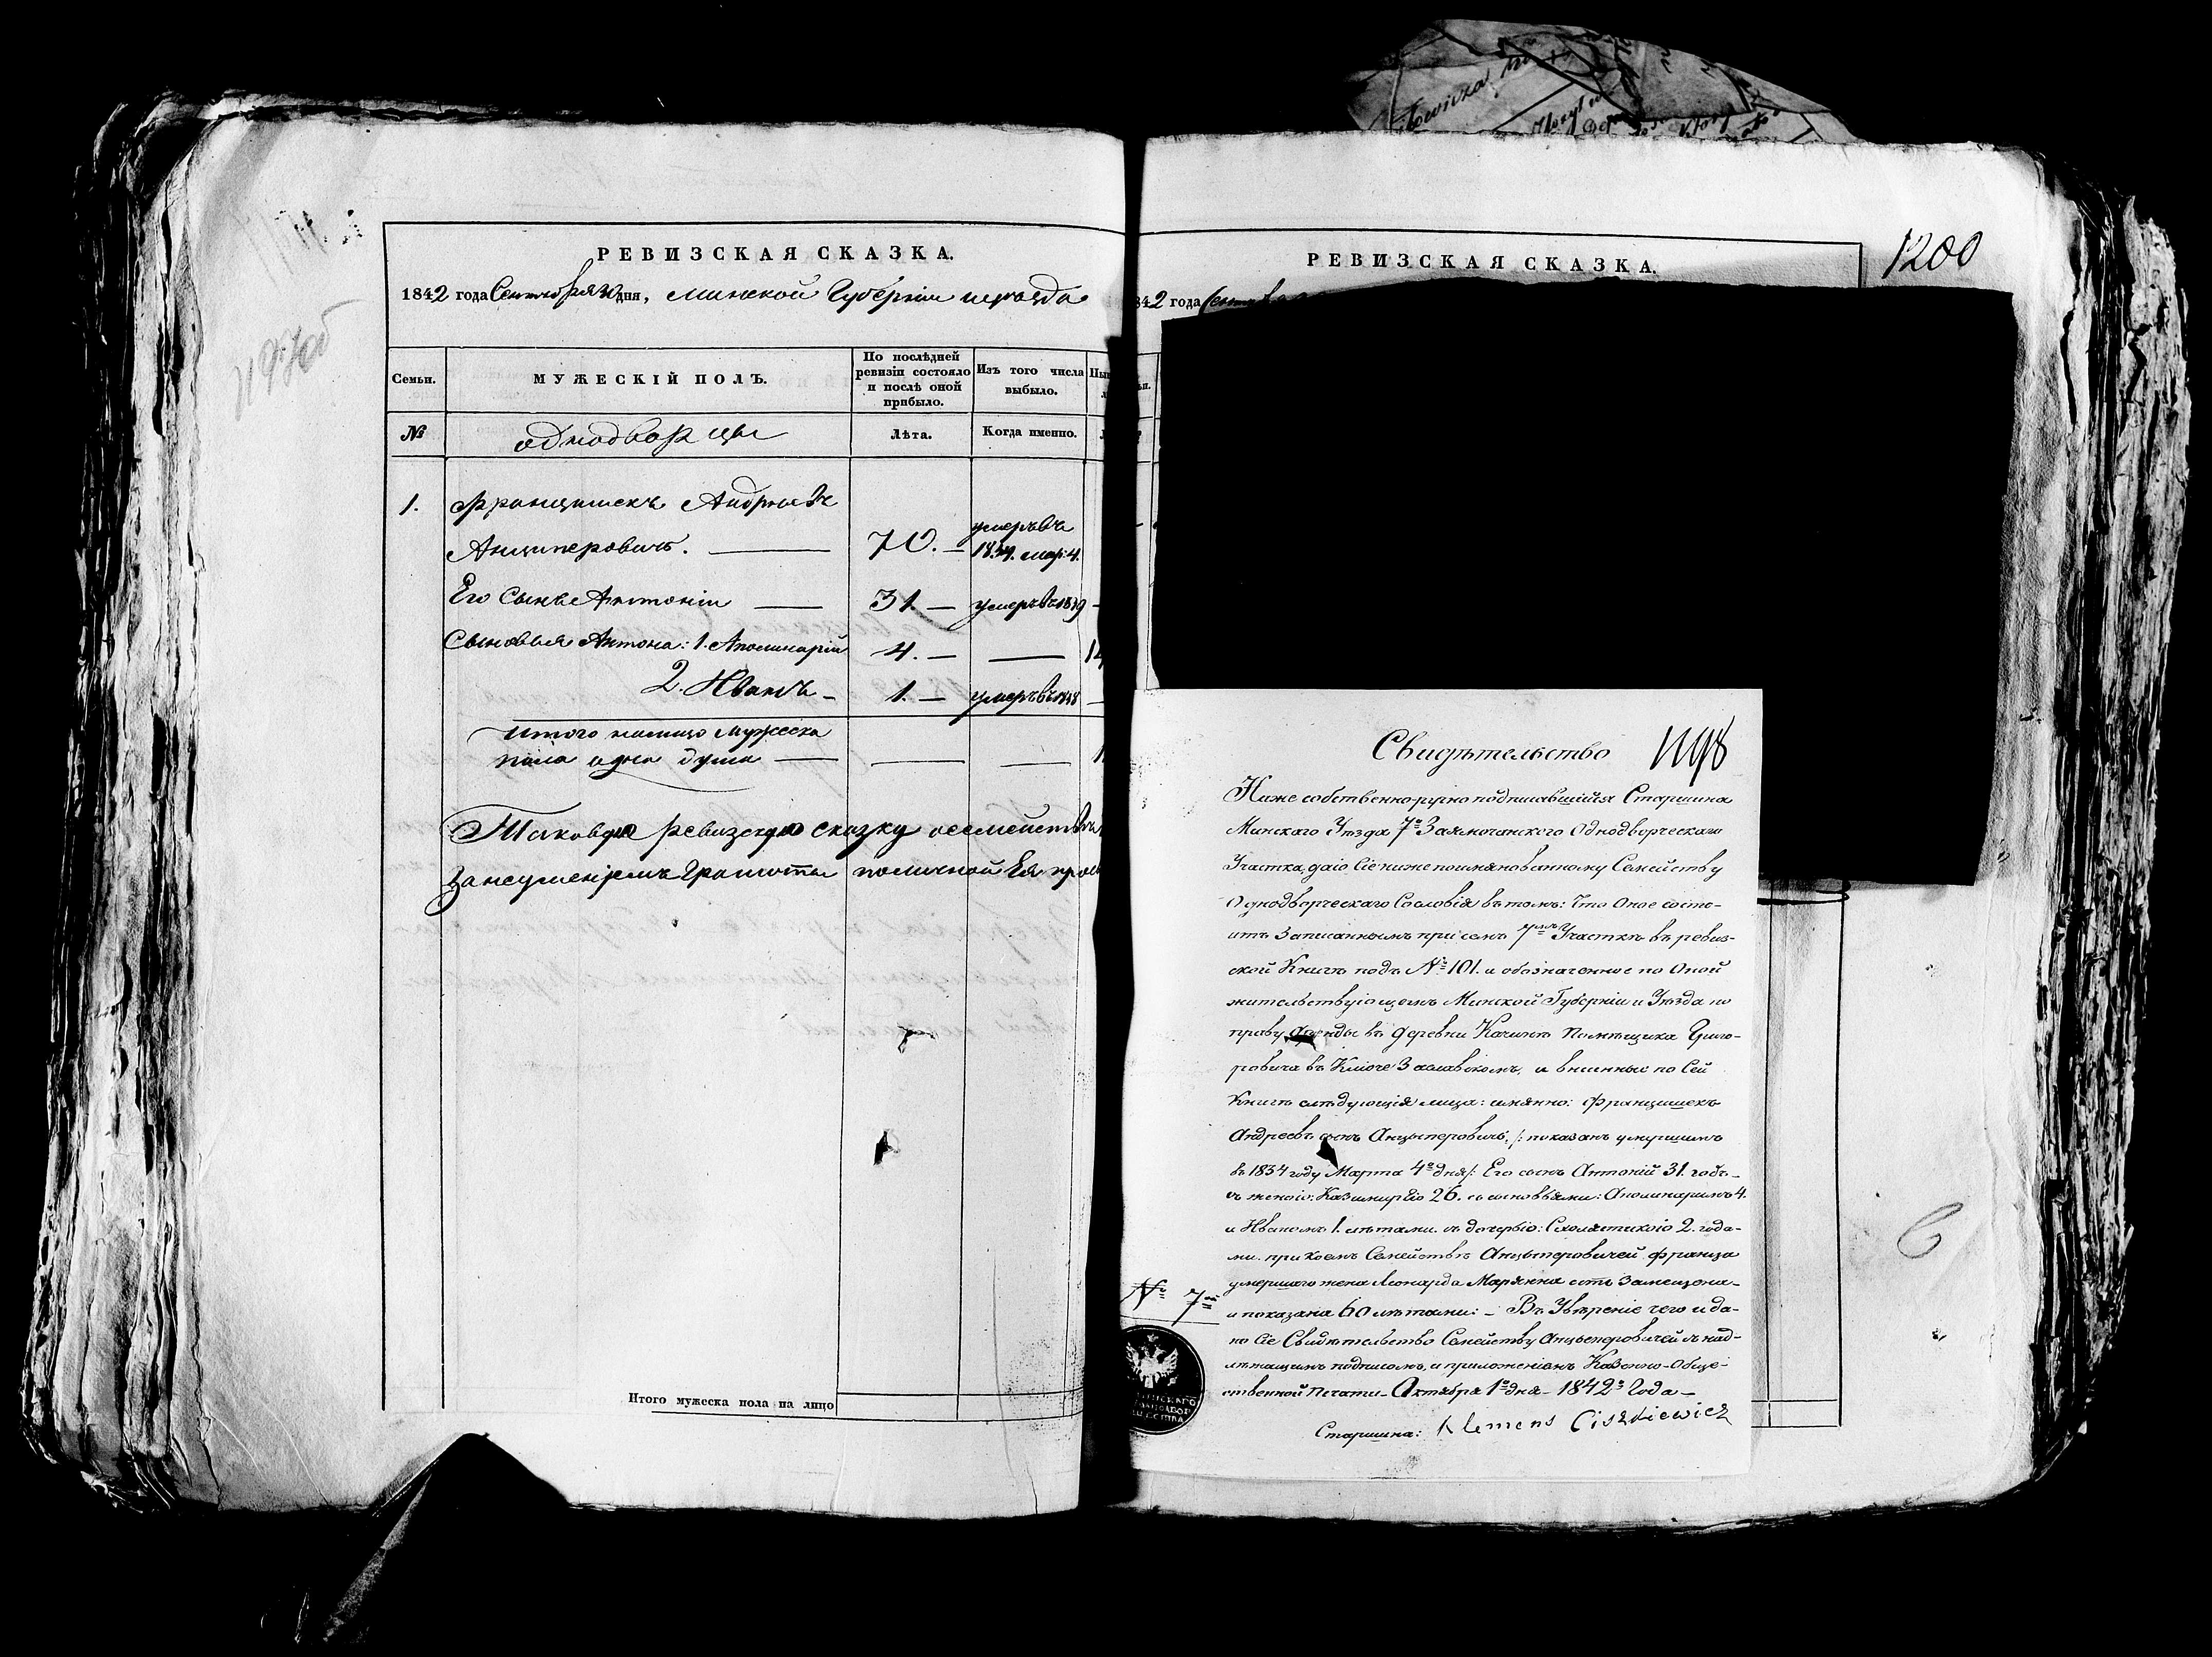 РЕВИЗСКАЯ СКАЗКА.
1842 года Сентября 30 дня, Минской Губерніи и уезда
Семьи.
МУЖЕСКІЙ ПОЛЪ.
По послѣдней ревизіи состояло и послѣ оной прибыло.
Изъ того числа выбыло.
№
однодворцы
Лѣта.
Когда именно.
1.
Францишекъ Андреевъ
Анциперовичъ.
70.
умеръ въ
1834. Мар: 4.
Его Сынъ Антоній
31.
умеръ въ 1839
Сыновья Антона: 1. Аполинарій
4.
14
2. Иванъ
1.
умеръ въ 1838
Итого налицо мужеска
пола одна душа
Таковую ревизскую сказку
за неумѣніемъ Грамоты
Итого мужеска пола на лицо
РЕВИЗСКАЯ СКАЗКА.
1200
842 года
Свидѣтельство
1198
Ниже собственноручно подписавшійся Старшина
Минскаго Уѣзда 7го Однодворческаго
Участка, даю Сіе ниже поименованному Семейству
Однодворческаго Сословія въ томъ: Что Оное состо-
итъ Записаннымъ при семъ 7мъ Участкѣ въ ревиз-
ской Книгѣ подъ № 101. и обозначенное по Оной
жительствующемъ Минской Губерніи и Уѣзда по
праву аренды въ деревни Качинѣ Помѣщика Григо-
ровича въ Ключе Заславскомъ, и внесенные по Сей
Книгѣ слѣдующія лица: имянно: Францишекъ
Андреевъ сынъ Анцыперовичъ, /: показанъ умершимъ
въ 1834 году Марта 4го дня /: Его сынъ Антоній 31. годъ
съ женою: Казимирою 26. съ сыновьями: Аполинаримъ 4.
и Иваномъ 1. лѣтами. съ дочерью: Схоластикою 2. года-
ми. при коемъ Семействѣ Анцыперовичей Франца
умершаго жена Леонарда Марянна
и показана 60 лѣтами: – Въ Увѣреніе чего и да-
но Сіе Свидѣтельство Семейству Анцыперовичей съ над-
лѣжащимъ подписомъ, и приложеніемъ Казенно-Обще-
ственной Печати – Октября 1го дня – 1842го Года –
№ 7й
Старшина: Klemens Ciszkiewicz